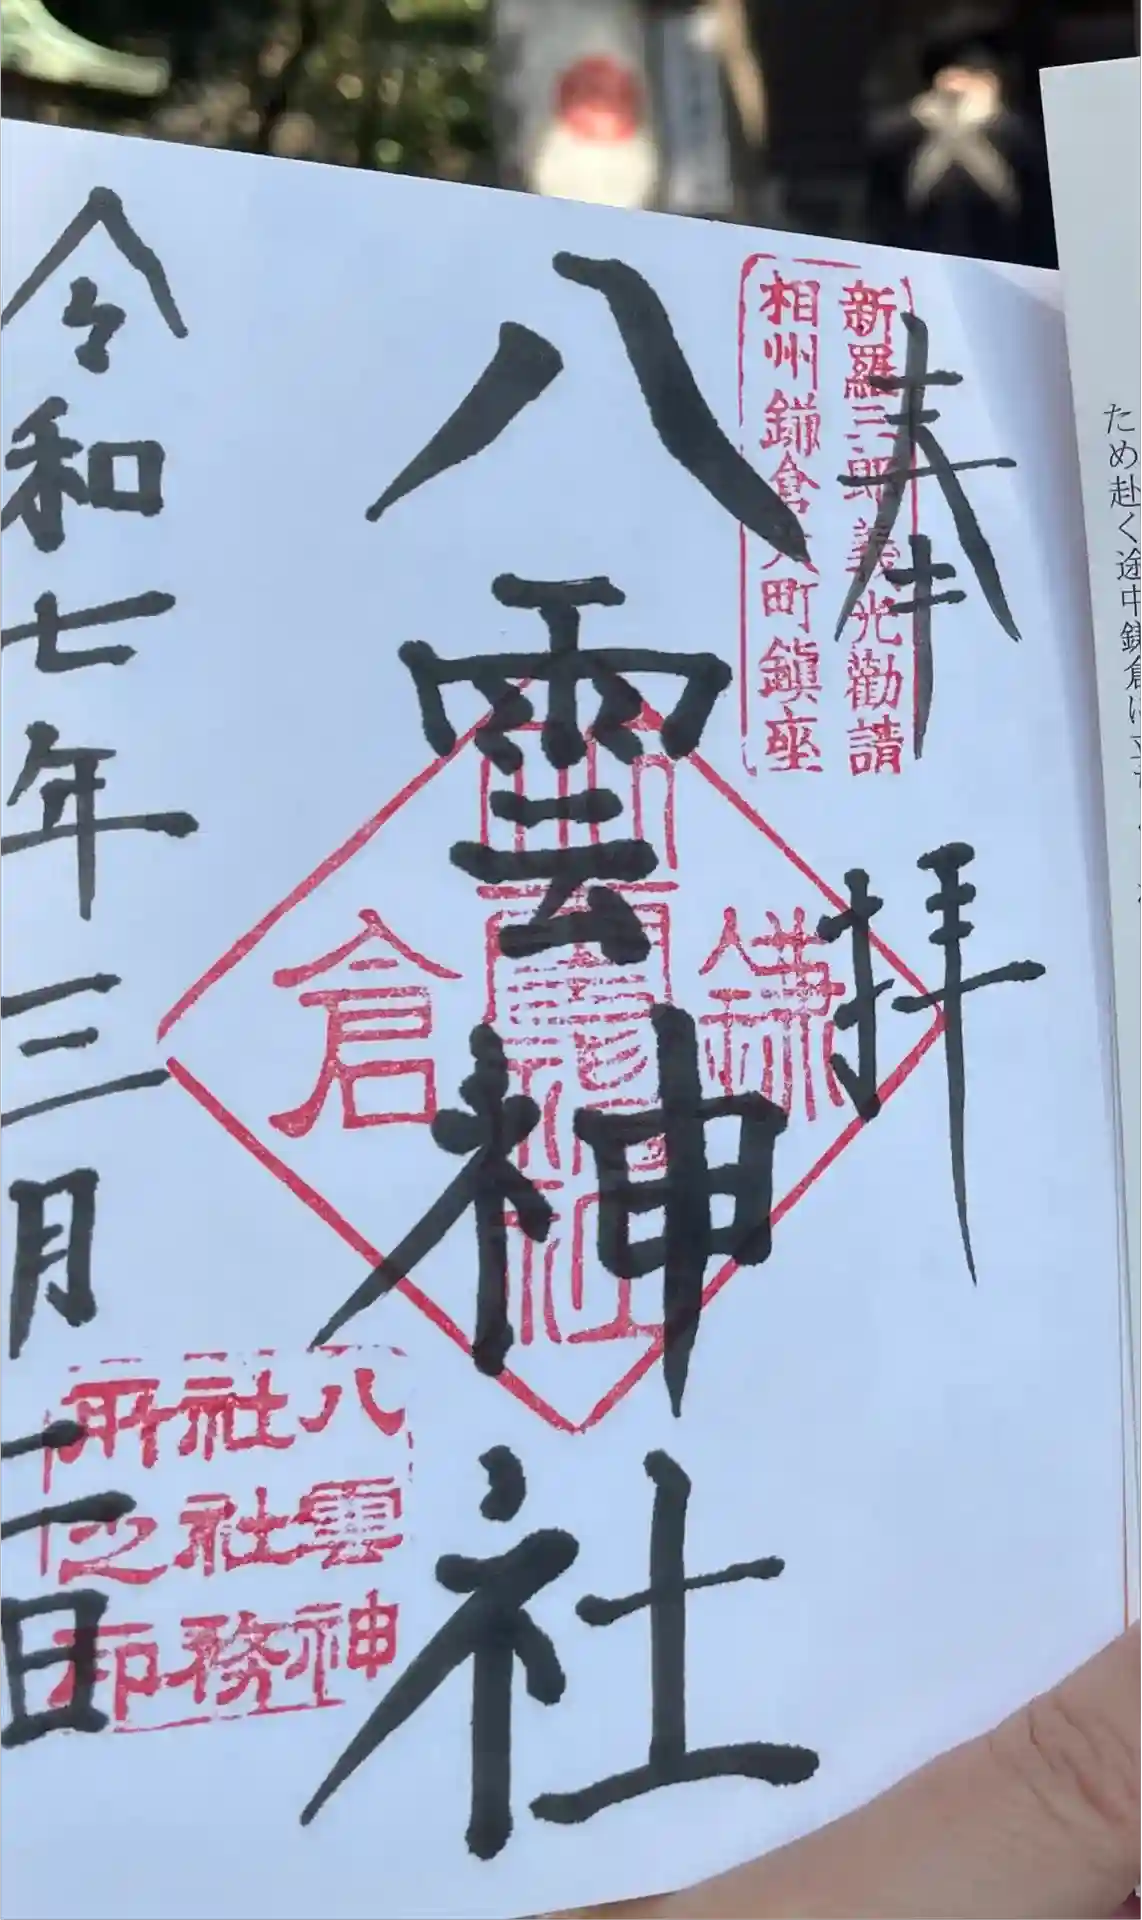 奉拝
新羅三郎義光勸請
相州鎌倉大町鎭座
八雲神社
鎌倉
八雲神社
八雲神
社社務
所之印
令和七年三月二日
ため赴く途中鎌倉に立